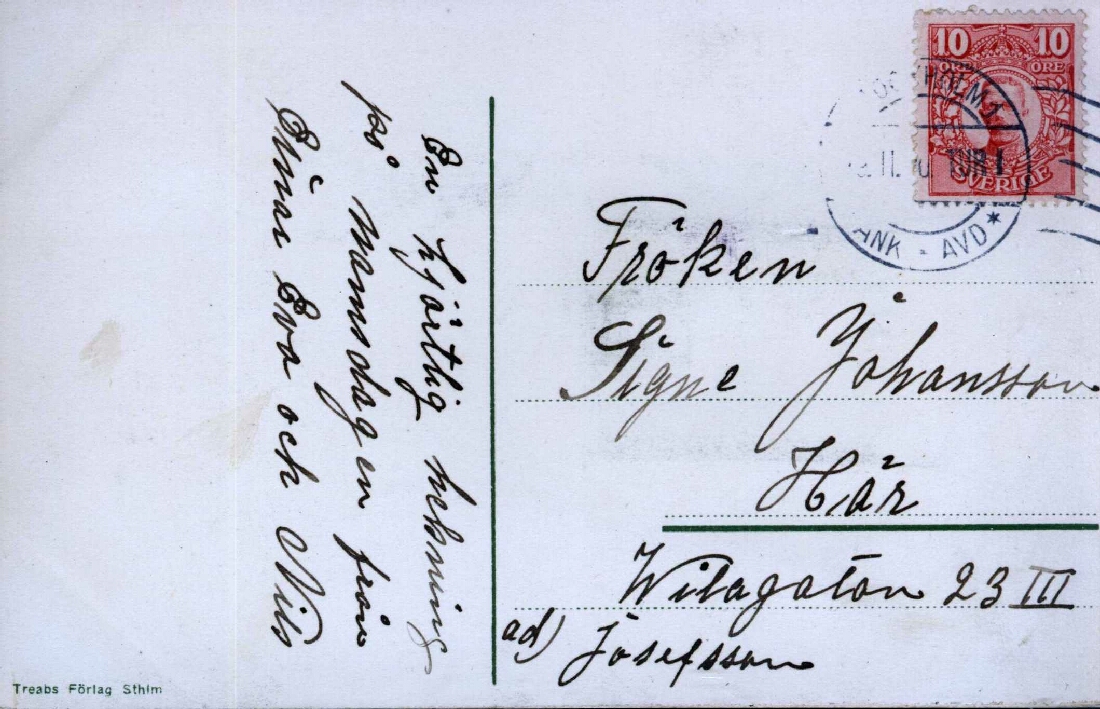 En hjärtlig helsning
på Namnsdagen från
Einar Eva och Nils
10 10
ÖRE ÖRE
SVERIGE
HOLM 1
11. TUR 1
ANK - AVD *
Fröken
Signe Johansson
Här
Witagatan 23 III
ad) Josefsson
Treabs Förlag Sthlm